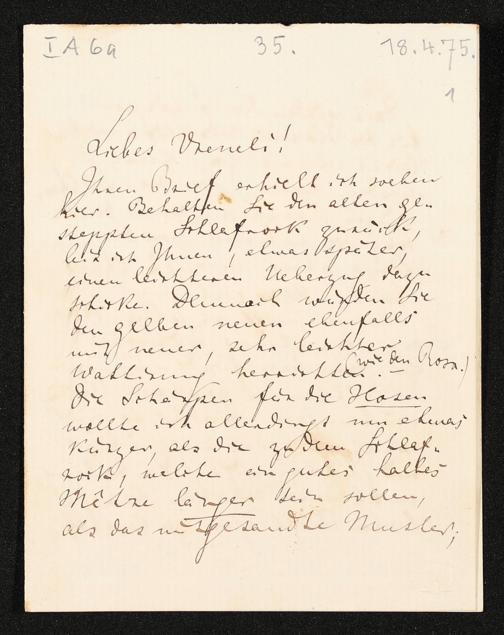 I A 6a 35. 18.4.75.
1
Liebes Vreneli!
Ihren Brief erhielt ich soeben
hier. Behalten Sie den alten ge-
steppten Schlafrock zurück,
bis ich Ihnen, etwas später,
einen leichteren Ueberzug dazu
schicke. Demnach würden Sie
den gelben neuen ebenfalls
mit neuer, sehr leichter
Wattirung herrichten. (wie den Rosa.) –
Die Schärpen für die Hosen
wollte ich allerdings um etwas
kürzer, als die zu dem Schlaf-
rock, welche ein gutes halbes
länger sein sollen,
als das mitgesandte Muster;